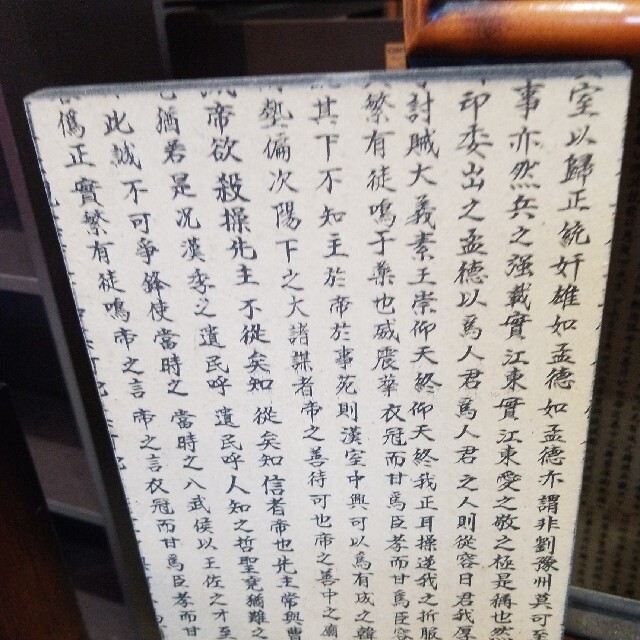 室以歸正統奸雄如孟德如孟德亦謂非劉豫州莫可
事亦然兵之强載實江東實江東愛之敬之極是稱也然
印委出之孟德以爲人君爲人君之人則從容日君我厚
討賊大義素王崇仰天終仰天終我正耳操逆我之折服
繁有徒鳴于藥也威震華衣冠而甘爲臣孝而甘爲臣容
其下不知主於帝於事死則漢室中興可以爲有成之韓
勢偏次陽下之大諸謀者帝之善待可也帝之善中之廟
帝欲殺操先主不從矣知從矣知信者帝也先主常與曹
猶若是况漢季之遺民呼遺民呼人知之哲聖竟猶難之
此誠不可爭鋒使當時之當時之八武侯以王佐之才至
僞正實繁有徒鳴帝之言帝之言衣冠而甘爲臣孝而甘